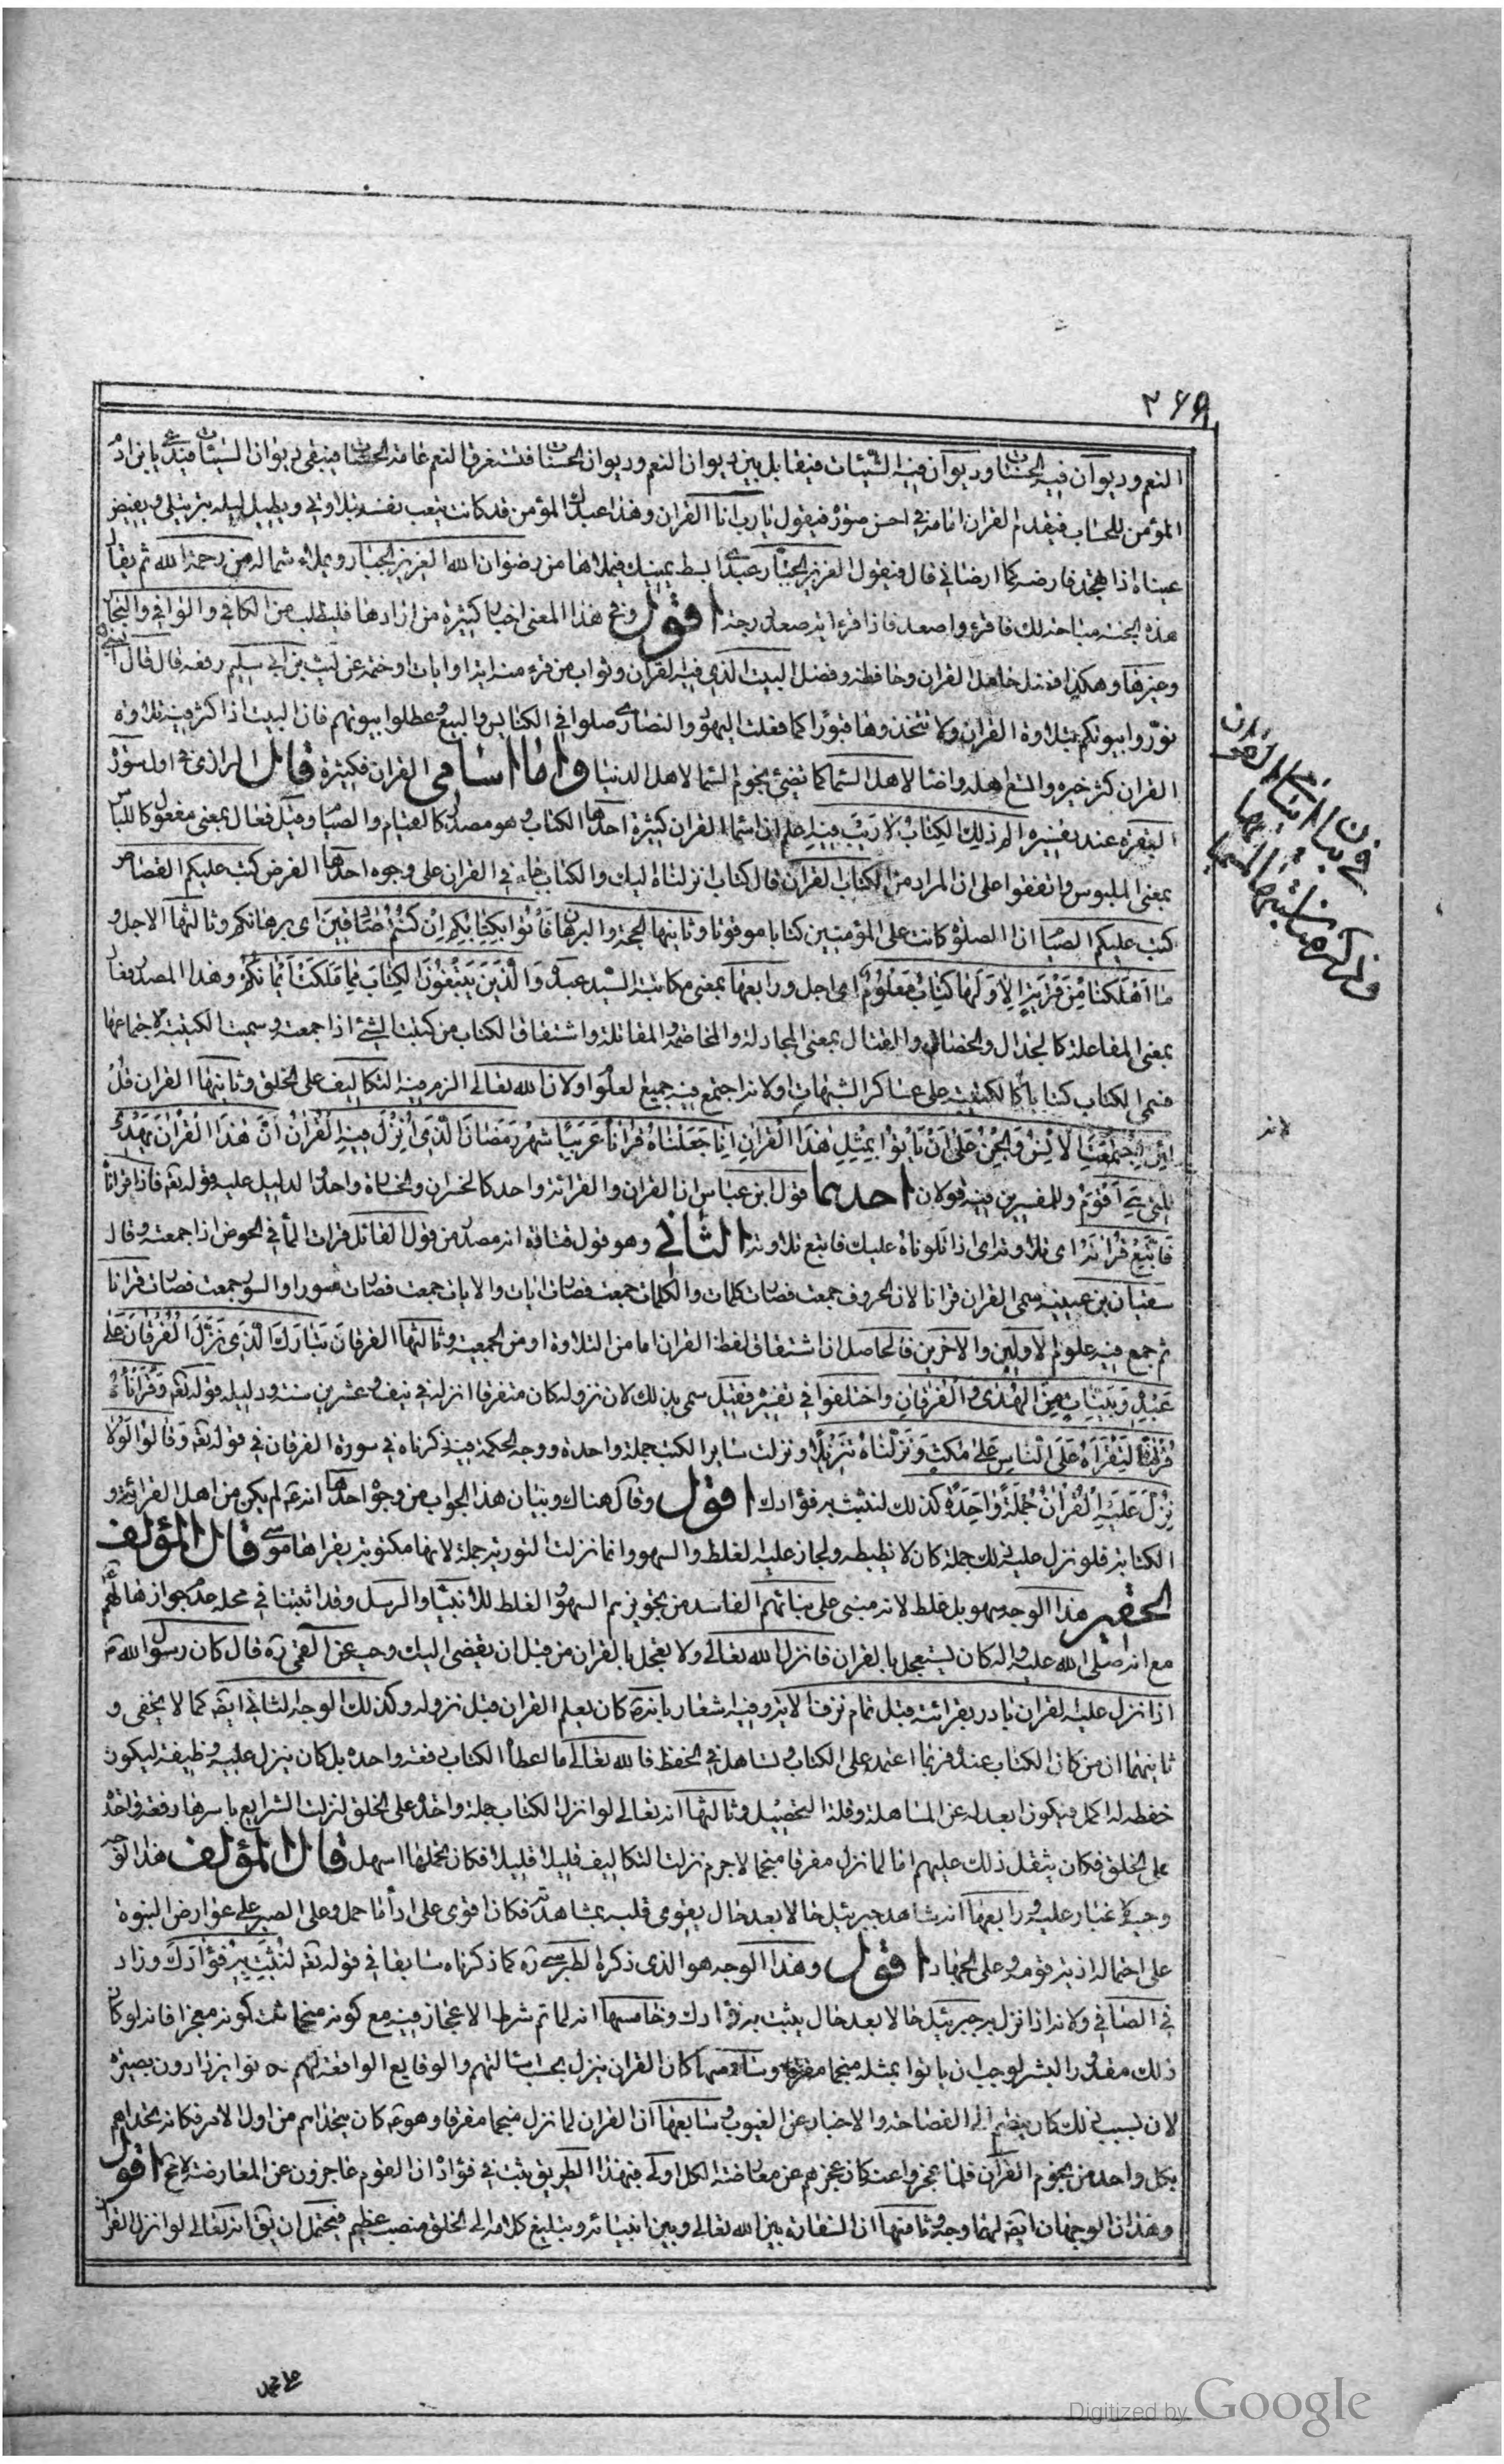 ٢٦٩
النعم وديوان فيه الحسنات وديوان فيه السيئات فيقابل بين ديوان النعم وديوان الحسنات فتستغرق النعم عامة الحسنات فيبقى ديوان السيئات فيدعى بابن ادم
المؤمن للحساب فيقدم القران امامه في احسن صورة فيقول يا رب انا القران وهذا عبدك المؤمن قد كانت يتعب نفسه بتلاوتي ويطيل ليله بترتيلي ويفيض
عيناه اذا تهجد فارضه كما ارضاني قال فيقول العزيز الجبار عبدي ابسط يمينك فيملاها من رضوان الله العزيز الجبار ويملاء شماله من رحمة الله ثم يقال
هذه الجنة مباحة لك فاقرء واصعد فاذا قرء اية صعد درجة اقول وفي هذا المعنى اخبار كثيرة من ارادها فليطلب من الكافي والوافي والبحار
وغيرها وهكذا فضل حامل القران وحافظه وفضل البيت الذي فيه القران وثواب من قرء منه اية او ايات او ختمه عن ليث بن ابي سليم رفعه قال قال النبي
نوروا بيوتكم بتلاوة القران ولا تتخذوها قبورا كما فعلت اليهود والنصارى صلوا في الكنايس والبيع وعطلوا بيوتهم فان البيت اذا كثر فيه تلاوة
القران كثر خيره واتسع اهله واضاء لاهل السماء كما تضئ نجوم السماء لاهل الدنيا واما اسامي القران فكثيرة قال الرازي في اول سورة
البقرة عند تفسيره الم ذلك الكتاب لا ريب فيه اعلم ان اسماء القران كثيرة احدها الكتاب وهو مصدر كالقيام والصيام وقيل فعال بمعنى مفعول كاللباس
بمعنى الملبوس واتفقوا على ان المراد من الكتاب القران قال كتاب انزلناه اليك والكتاب جاء في القران على وجوه احدها الفرض كتب عليكم القصاص
كتب عليكم الصيام ان الصلوة كانت على المؤمنين كتابا موقوتا وثانيها الحجة والبرهان فأتوا بكتابكم ان كنتم صادقين اى برهانكم وثالثها الاجل و
ما اهلكنا من قرية الا ولها كتاب معلوم اى اجل ورابعها بمعنى مكاتبة السيد عبده والذين يبتغون الكتاب مما ملكت ايمانكم وهذا المصدر فعال
بمعنى المفاعلة كالجدال والخصام والقتال بمعنى المجادلة والمخاصمة والمقاتلة واشتقاق الكتاب من كتبت الشئ اذا جمعته وسميت الكتيبة لاجتماعها
فسمى الكتاب كتابا لانه كالكتيبة على عساكر الشبهات او لانه اجتمع فيه جميع العلوم او لان الله تعالى الزم فيه التكاليف على الخلق وثانيها القران قل
لئن اجتمعت الانس والجن على ان يأتوا بمثل هذا القران انا جعلناه قرانا عربيا شهر رمضان الذى انزل فيه القران ان هذا القران يهدى
للتى هى اقوم وللمفسرين فيه قولان احدهما قول ابن عباس ان القران والقرائة واحد كالخسران والخسارة واحد الدليل عليه قوله تعه فاذا قراناه
فاتبع قرانه اى تلاوته اى اذا تلوناه عليك فاتبع تلاوته الثاني وهو قول قتادة انه مصدر من قول القائل قرات الماء في الحوض اذا جمعته وقال
سفيان بن عيينة سمى القران قرانا لان الحروف جمعت فصارت كلمات والكلمات جمعت فصارت ايات والايات جمعت فصارت سورا والسور جمعت فصارت قرانا
ثم جمع فيه علوم الاولين والاخرين فالحاصل ان اشتقاق لفظ القران اما من التلاوة او من الجمعية وثالثها الفرقان تبارك الذى نزل الفرقان على
عبده وبينات من الهدى والفرقان واختلفوا في تفسيره فقيل سمى بذلك لان نزوله كان متفرقا انزله في نيف وعشرين سنة ودليله قوله تعه وقرانا
فرقناه لتقرأه على الناس على مكث ونزلناه تنزيلا ونزلت سائر الكتب جملة واحدة ووجه الحكمة فيه ذكرناه في سورة الفرقان في قوله تعه وقالوا لولا
نزل عليه القران جملة واحدة كذلك لنثبت به فؤادك اقول وقال هناك وبيان هذا الجواب من وجوه احدها انه عم لم يكن من اهل القرائة و
الكتابة فلو نزل عليه ذلك جملة كان لا يضبطه ولجاز عليه الغلط والسهو وانما نزلت التورية جملة لانها مكتوبة يقراها موسى قال المؤلف
الحقير هذا الوجه سهو بل غلط لانه مبنى على بنائهم الفاسد من تجويزهم السهو والغلط للانبياء والرسل وقد اثبتنا في محله عدم جوازها لهم
مع انه صلى الله عليه واله كان يستعجل بالقران فانزل الله تعالى ولا تعجل بالقران من قبل ان يقضى اليك وحيه عن القمى ره قال كان رسول الله ص
اذا نزل عليه القران بادر بقرائته قبل تمام نزول الاية وفيه اشعار بانه كان يعلم القران قبل نزوله وكذلك الوجه الثاني ايضا كما لا يخفى و
ثانيهما ان من كان الكتاب عنده فربما اعتمد على الكتاب وتساهل في الحفظ فالله تعالى ما اعطاه الكتاب دفعة واحدة بل كان ينزل عليه وظيفة ليكون
حفظه له اكمل فيكون ابعد له عن المساهلة وقلة التحصيل وثالثها انه تعالى لو انزل الكتاب جملة واحدة على الخلق لنزلت الشرايع باسرها دفعة واحدة
على الخلق فكان يثقل ذلك عليهم اما لما نزل مفرقا منجما لا جرم نزلت التكاليف قليلا قليلا فكان تحملها اسهل قال المؤلف هذا الوجه
وجيه لا غبار عليه ورابعها انه شاهد جبرئيل حالا بعد حال يقوى قلبه بمشاهدته فكان اقوى على اداء ما حمل وعلى الصبر على عوارض النبوة
على احتمال اذية قومه وعلى الجهاد اقول وهذا الوجه هو الذى ذكره الطبرسي ره كما ذكرناه سابقا في قوله تعه لنثبت به فؤادك وزاد
في الصافي ولانه اذا نزل به جبرئيل حالا بعد حال يثبت به فؤادك وخامسها انه لما تم شرط الاعجاز فيه مع كونه منجما ثبت كونه معجزا فانه لو كان
ذلك مقدور البشر لوجب ان يأتوا بمثله منجما مفرقا وسادسها كان القران ينزل بحسب اسئلتهم والوقايع الواقعة لهم فكانوا يزدادون بصيرة
لان بسبب ذلك كان ينضم الى الفصاحة والاخبار عن الغيوب وسابعها ان القران لما نزل منجما مفرقا وهو عم كان يتحداهم من اول الامر فكانه تحداهم
بكل واحد من نجوم القران فلما عجزوا عنه كان عجزهم عن معارضة الكل اولى فبهذا الطريق يثبت في فؤاده ان القوم عاجزون عن المعارضة لا مح اقول
وهذان الوجهان ايضا لهما وجه وثامنها ان السفارة بين الله تعالى وبين انبيائه وتبليغ كلامه الى الخلق منصب عظيم فيحتمل ان يق انه تعالى لو انزل القران
Digitized by Google